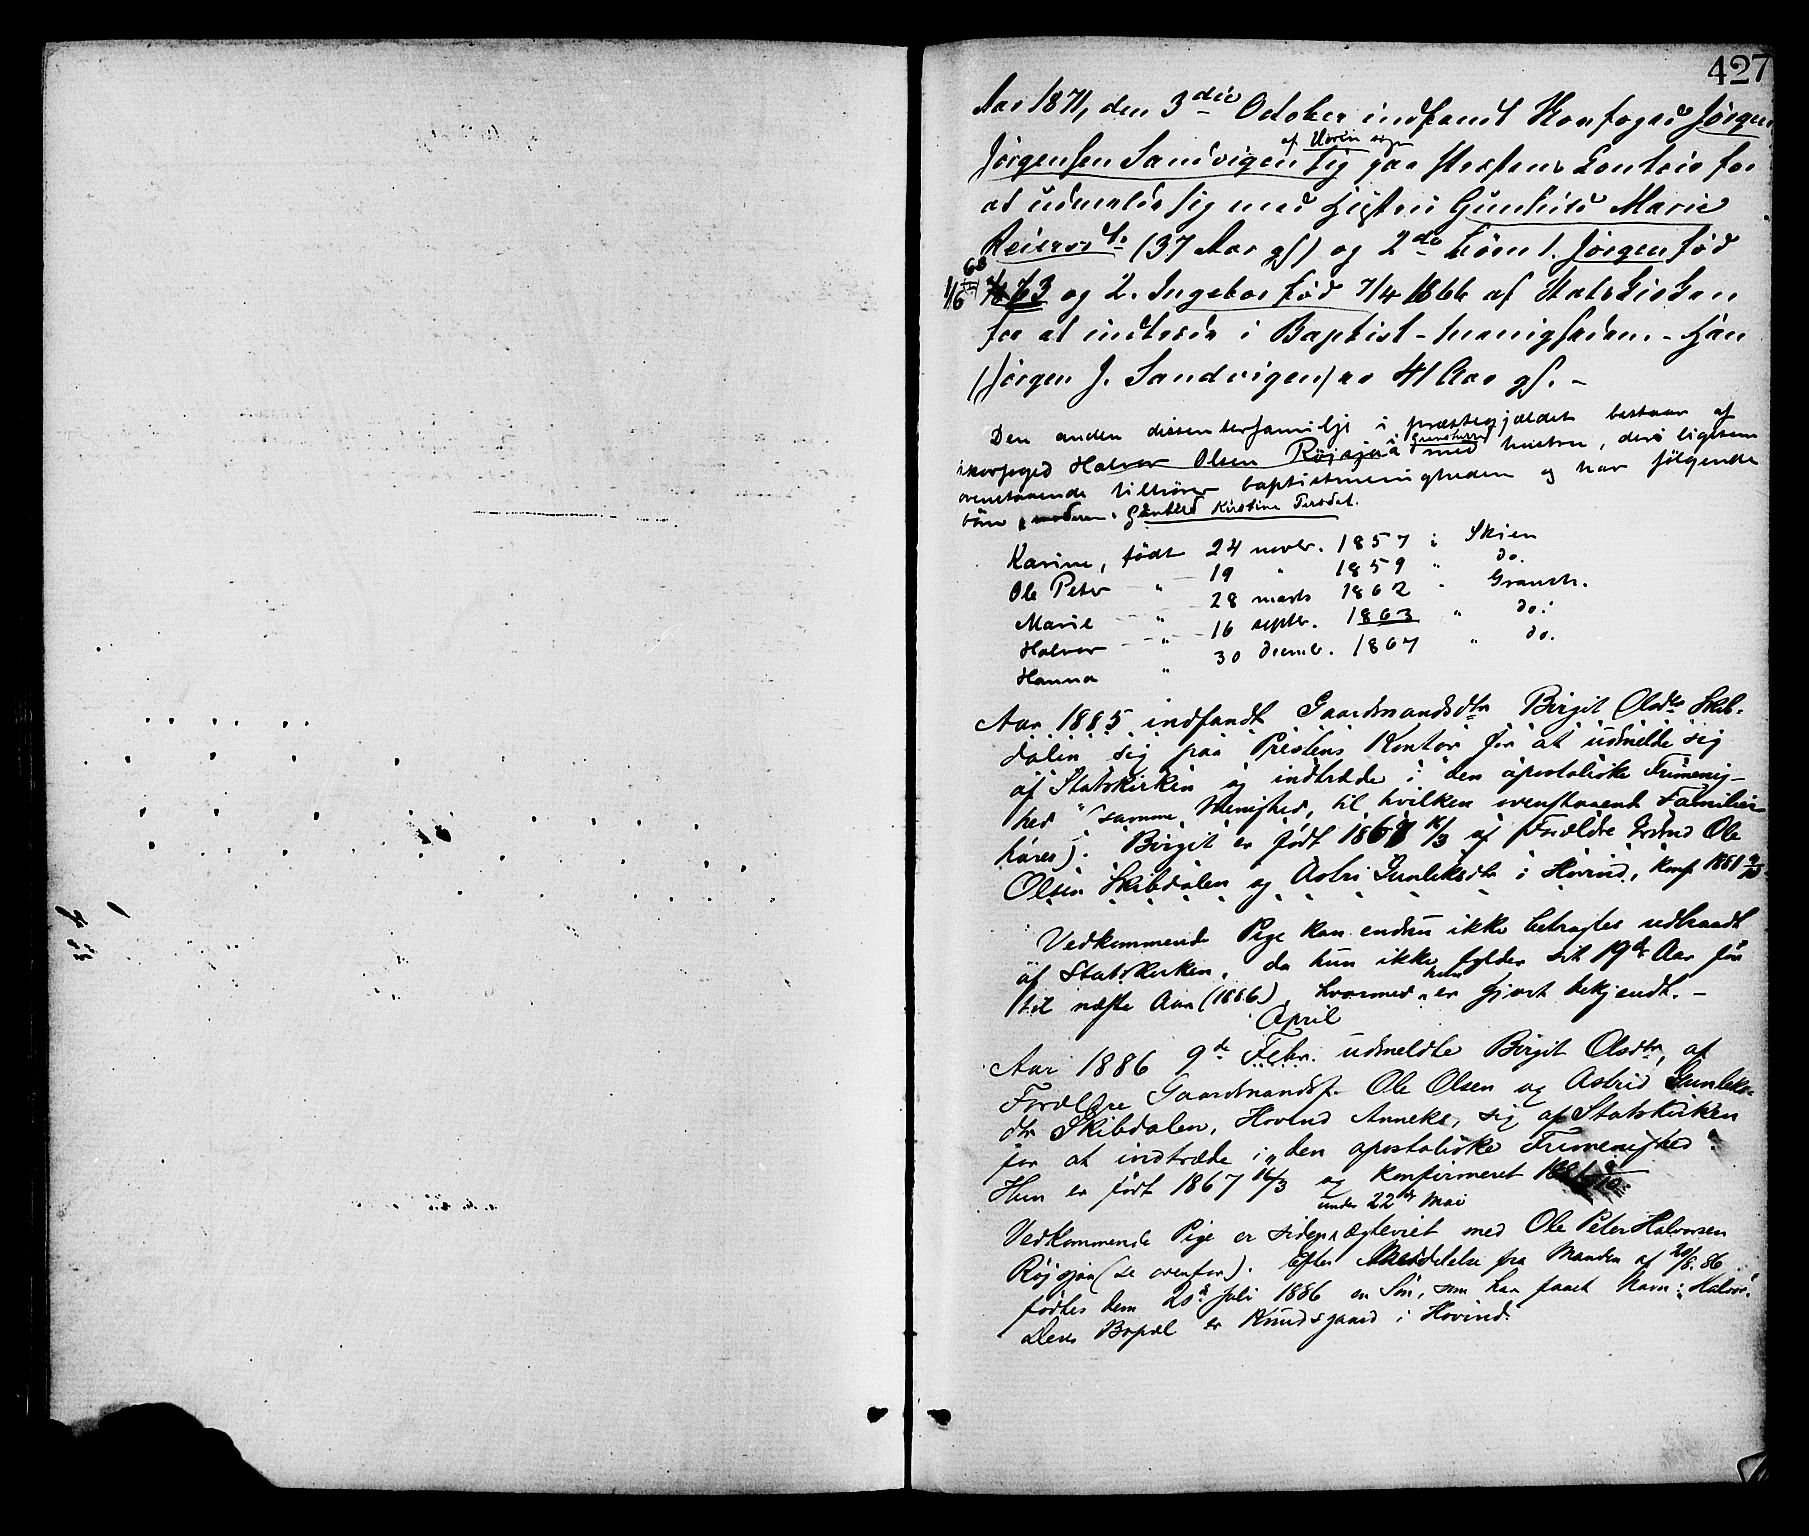 427
Aar 1871, den 3die October indfandt Skovfoged Jørgen
Jørgensen Sandvigen sig paa Prestens Contoir for
at udmelde sig med Hustru Gunhild Marie
(37 Aar gl) og 2de Børn 1. Jørgen fød
og 2. Ingebor fød 7/4 1866 af Statskirken
for at indtræde i Baptist-menigheden. - Han
(Jørgen J. Sandvigen) er 41 Aar gl. -
Den anden dissenterfamilje i præstegjældet bestaar af
skovfoged Halvor Olsen Röjsjaa med hustru, der ligesom
ovenstaaende tilhører baptistmenigheden og har følgende
börn. Gunhild Kirstine Tersdat.
Karine, født 24 novbr. 1857 i Skien
Ole Peter " 19 " 1859 " do.
Marie " 28 marts 1862 " Gransh.
Halvor " 16 septbr. 1863 " do.
Hanna " 30 decmb. 1867 " do.
Aar 1885 indfandt Gaardmandsdtr Birgit Olsdtr Skib-
dalen sig paa Prestens Kontor for at udmelde sig
af Statskirken og indtræde i "den apostoliske Frimenig-
hed" (samme Menighed, til hvilken ovenstaaende Familier
hører). Birgit er født 1867 16/3 af Forældre Ole
Olsen Skibdalen og Astri Gunleksdtr i Hovind, konf. 1881
Vedkommende Pige kan endnu ikke betragtes udtraadt
af Statskirken, da hun ikke fylder sit 19de Aar før
til næste Aar (1886), hvormed hun er gjort bekjendt. -
April
Aar 1886 9de Febr. udmeldte Birgit Olsdtr, af
Forældre Gaardmandsf. Ole Olsen og Astrid Gunleks-
dtr Skibdalen, Hovind Anneks, sig af Statskirken
for at indtræde i "den apostoliske Frimenighed".
Hun er født 1867 16/3 og konfirmeret 1881
under 22de Mai
Vedkommende Pige er siden ægteviet med Ole Peter Halvorsen
Röjsjaa (se ovenfor). Efter Meddelelse fra Manden af 20/8.86
fødtes dem 20de Juli 1886 en Søn, som har faaet Navn: Halvor.
Deres Bopæl er Knudsgaard i Hovind.